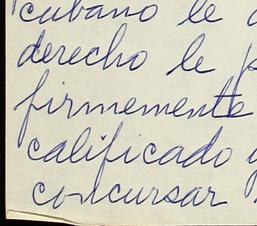 cubano le
derecho le
firmemente
calificado
concursar